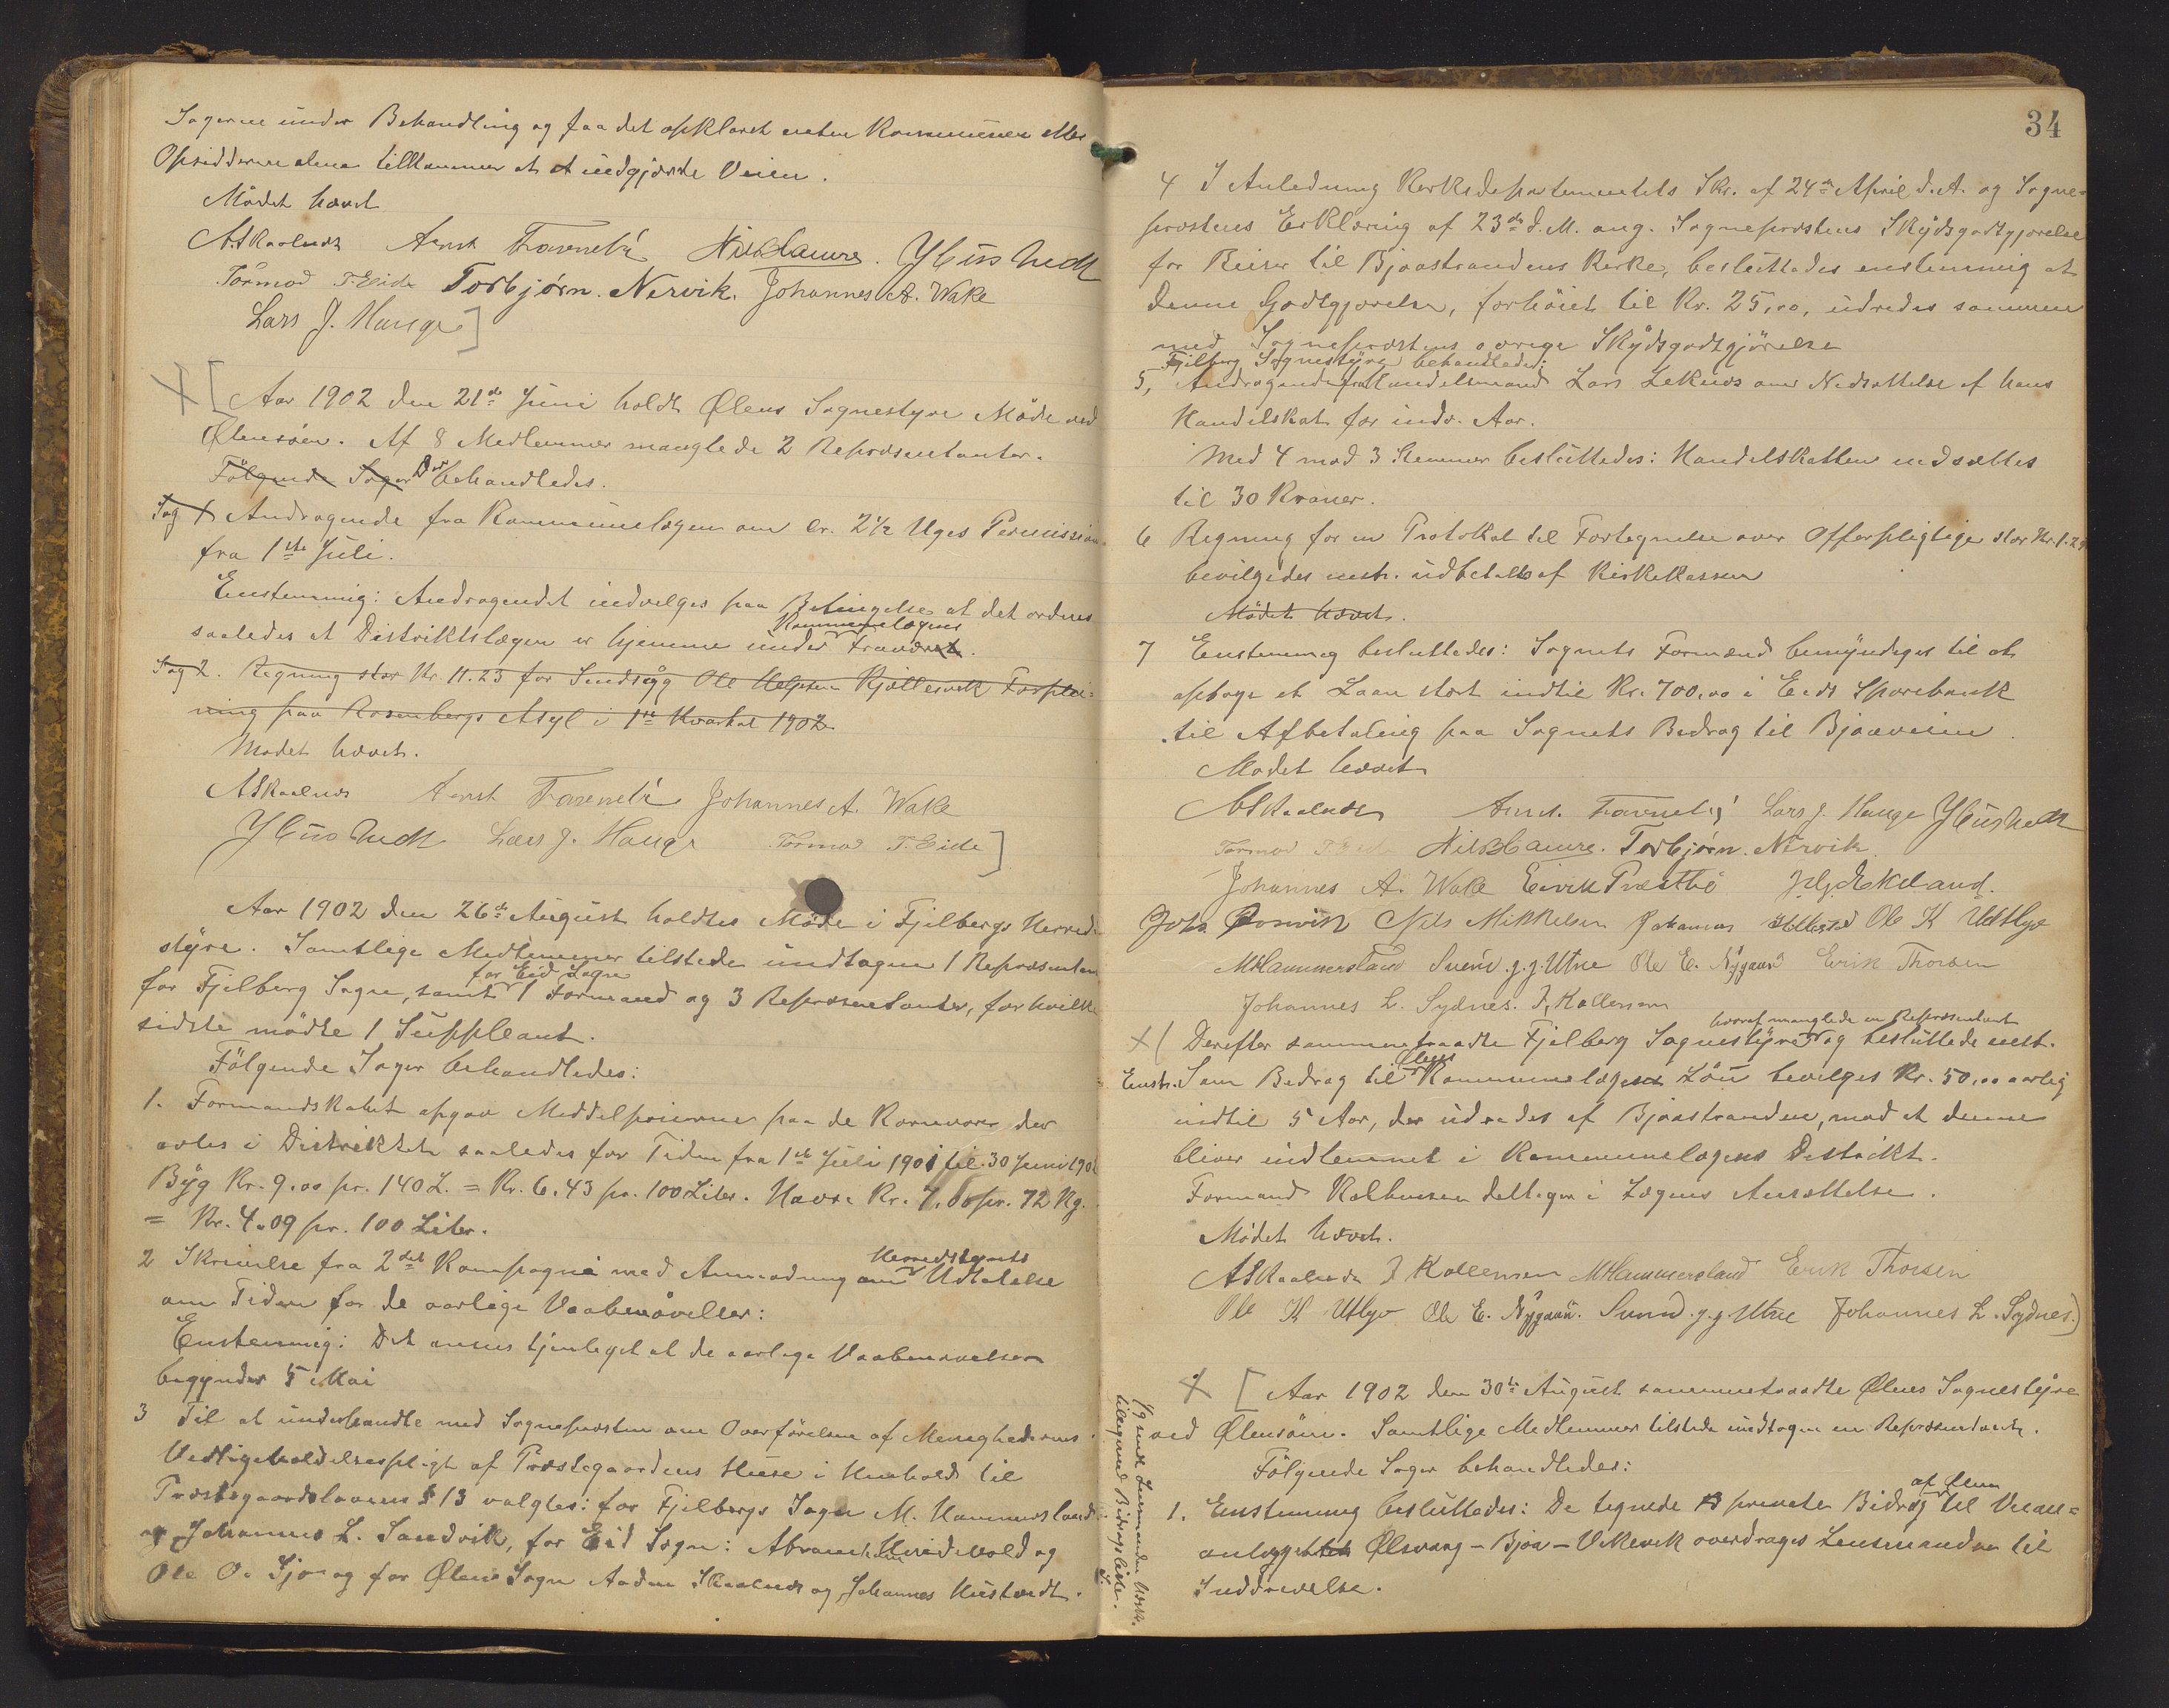 Sagerne under Behandling og faa det opklaret enten Kommunen eller
Opsidderne alene tilkommer at udgjørde Veien.
Mödet hævet
ASkaalnes Arnt Travnebö NilsHamre. JHustvedt
Tormod T. Eide Torbjørn. Nervik. Johannes A. Wake
Lars J. Hauge]
X [ Aar 1902 den 21de Juni holdt Ølens Sognestyre Möde ved
Ølensöen. Af 8 Medlemmer manglede 2 Repræsentanter.
Fölgende Sager Der behandledes.
Sag 1 Andragende fra Kommunelægen om cr. 2½ Uges Permission
fra 1ste Juli.
Enstemmig: Andragendet indvelges paa Betingelse at det ordnes
Kommunelægens
saaledes at Distriktslægen er hjemme under Fravær.
Sag 2. Regning stor Kr. 11.23 for Sindsyg Ole Helgesen Kjöllesvik Forplei=
ning paa Rosenbergs Asyl i 1ste Kvartal 1902
Mødet hævet.
ASkaalnes Arnt Travnebö Johannes A. Wake
JHustvedt Lars J. Hauge Tormod T. Eide]
Aar 1902 den 26de August holdtes Møde i Fjelbergs Herreds
styre. Samtlige Medlemmer tilstede undtagen 1 Repræsentant
for Eid Sogn
for Fjelberg Sogn, samt 1 Formand og 3 Repræsentanter, for hvilke
sidste mödte 1 Suppleant.
Fölgende Sager behandledes:
1. Formandskabet opgav Middelpriserne paa de Kornvarer der
avles i Distriktet saaledes for Tiden fra 1ste Juli 1901 til 30 Juni 1902
Byg Kr. 9.00 pr. 140 L. = Kr. 6.43 pr. 100 Liter. Havre Kr. 7.00 pr. 72 Kg.
= Kr. 4.09 pr. 100 Liter.
Herredstyrets
2 Skrivelse fra 2det Kompagni med Anmodning om Udtalelse
om Tiden for de aarlige Vaabenövelser:
Enstemmig: Det ansees tjenligst at de aarlige Vaabenøvelser
begynder 5 Mai
3 Til at underhandle med Sognepresten om Overförelsen af Menighedernes
Vedligeholdelsespligt af Præstegaardens Huse i Henhold til
Præstegaardslovens § 13 valgtes: for Fjelbergs Sogn M. Hammersland
og Johannes L. Sandvik, for Eid Sogn: Abraham Hindevold og
Ole O. Sjo og for Ølens Sogn Anders Skaalnes og Johannes Hustvedt.
34
4 I Anledning Kirkedepartementets Skr. af 24de April d.A. og Sogne=
præstens Erklæring af 23de d.M. ang. Sognepræstens Skydsgodtgjørelse
for Reiser til Bjoastrandens Kirke, besluttedes enstemmig at
denne Godtgjørelse, forhöiet til Kr. 25,00, udredes sammen
med Sognepræstens øvrige Skydsgodtgjörelse
Fjelberg Sognestyre behandlede:
5, Andragende fra Handelsmand Lars Leknes om Nedsættelse af hans
Handelskat for indv. Aar.
Med 4 mod 3 Stemmer besluttedes: Handelskatten nedsættes
til 30 Kroner.
6 Regning for en Protokol til Fortegnelse over Offerpligtige stor Kr. 1.25
bevilgedes enst. udbetalt af Kirkekassen
Mödet hævet.
7 Enstemmig besluttedes: Sognets Formand bemyndiges til at
optage et Laan stort indtil Kr. 700,00 i Eids Sparebank
til Afbetaling paa Sognets Bidrag til Bjoaveien.
Mødet hævet
ASkaalnes Arnt. Travnebö Lars J. Hauge JHustvedt
Tormod T. Eide NilsHamre. Torbjørn. Nervik
Johannes A. Wake Eirik Præstbö J.G. Ekeland.
Nils Mikkelsen Ole K Utbjo
MHammersland Svend. J. J. Utne Ole E. Nygaard Erik Thorsen
Johannes L. Sydnes. J. Kallensen
hvoraf manglede en Repræsentant
X ( Derefter sammentraadte Fjelberg Sognestyre og besluttede enst.
Ølens
Enst. Som Bidrag til Kommunelægens Lön bevilges Kr. 50,00 aarlig
indtil 5 Aar, der udredes af Bjoastranden, mod at denne
bliver indlemmet i Kommunelægens Distrikt.
Formand Kallensen deltager i Lægens Ansættelse.
Mødet hævet.
ASkaalnes J Kallensen MHammersland Erik Thorsen
Ole K Utbjo Ole E. Nygaard. Svend. J. J Utne Johannes L. Sydnes.)
X [ Aar 1902 den 30te August sammentraadte Ølens Sognestyre
ved Ølensöen. Samtlige Medlemmer tilstede undtagen en Repræsentant.
Fölgende Sager behandledes:
af Ølen
1. Enstemmig besluttedes: De tegnede private Bidrag til Veian=
anlægget Ølsvaag – Bjoa – Vikevik overdrages Lensmanden til
Inddrivelse.